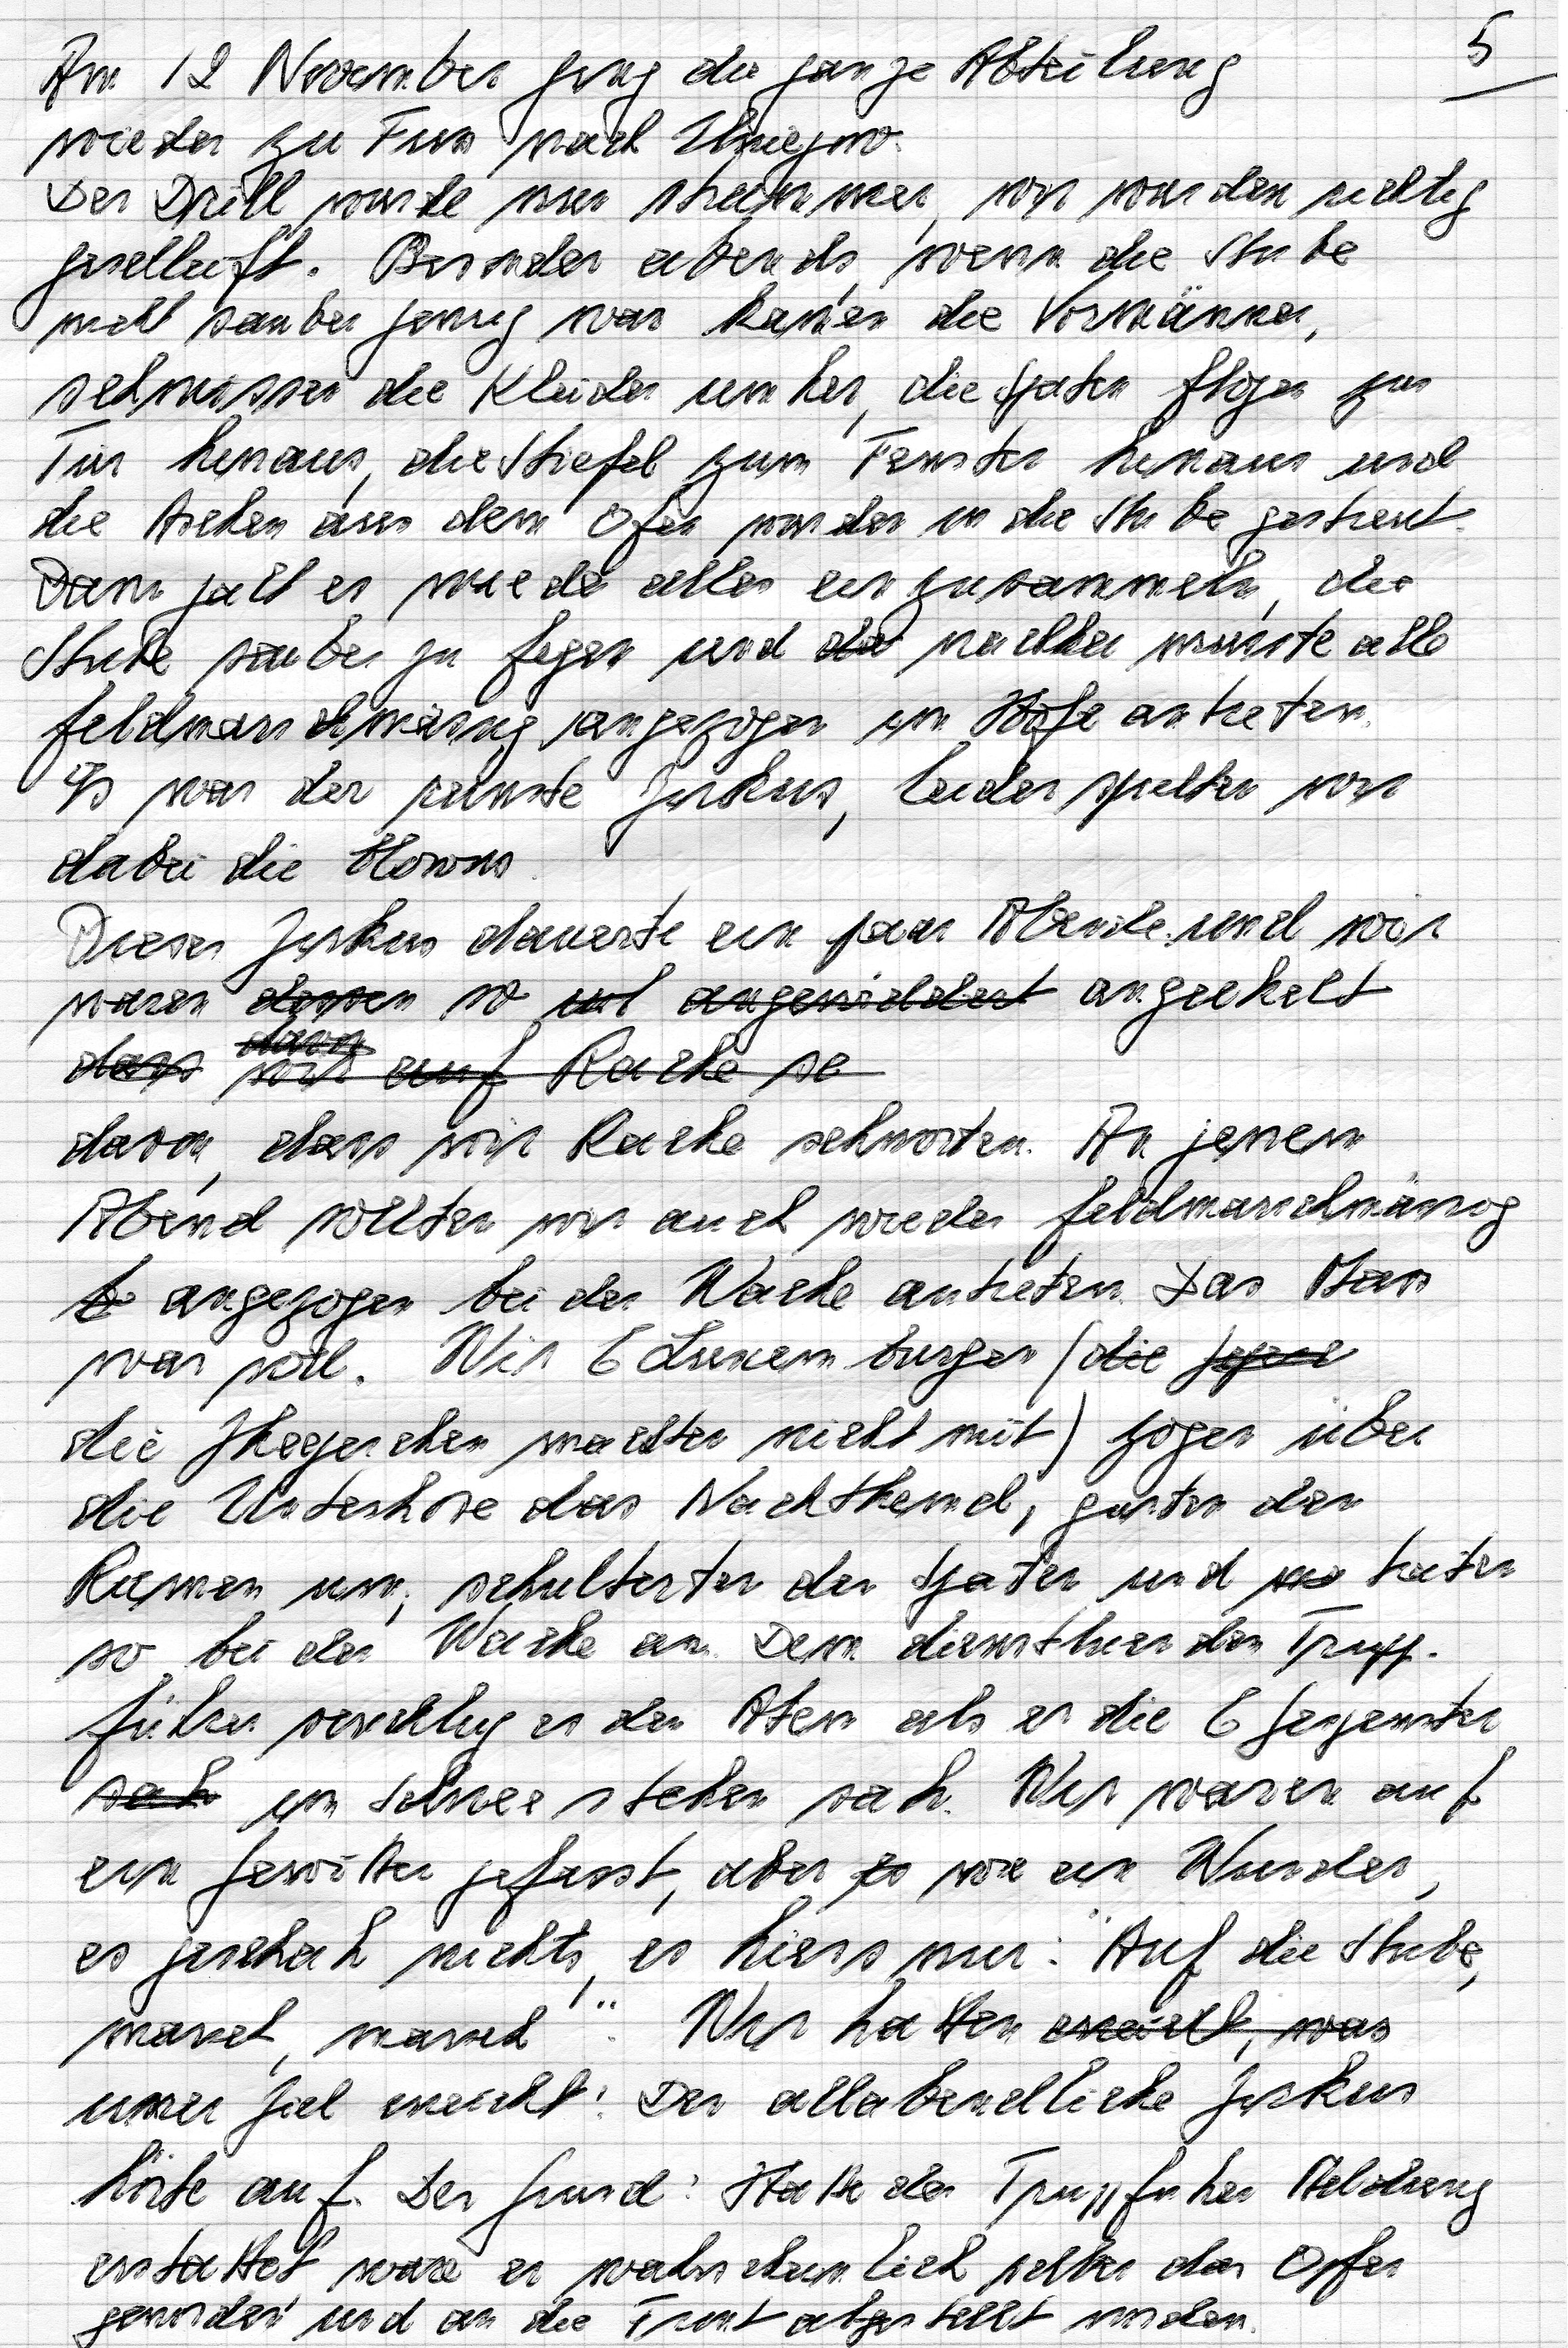 5
Am 12 November ging die ganze Abteilung
wieder zu Fuss nach
Der Drill wurde nun strammer, wir wurden richtig
geschleift. Besonder abends, wenn die Stube
nicht sauber genug war kamen die Vormänner,
schmissen die Kleider umher, die Spaten flogen zur
Tür hinaus, die Stiefel zum Fenster hinaus und
die Aschen aus dem Ofen wurden in die Stube gestreut.
Dann galt es wieder alles einzusammeln, die
Stube sauber zu fegen und nachher musste alle
feldmarschmässig angezogen im Hofe antreten.
Es war der reinste Zirkus, leider spielten wir
dabei die Clowns.
Dieser Zirkus dauerte ein paar Abende und wir
waren dessen so angewiddert angeekelt
dass davon wir auf Rache se
davon, dass wir Rache schworten. An jenem
Abend sollten wir auch wieder feldmarschmässig
angezogen bei der Wache antreten. Das Mass
war voll. Wir 6 Luxemburger (die
die machten nicht mit) zogen über
die Unterhose das Nachthemd, gurten den
Riemen um, schulterten den Spaten und traten
so bei der Wache an. Dem diensttuenden Trupp-
führer verschlug es den Atem als er die 6 Gespenster
sah im Schnee stehen sah. Wir waren auf
ein Gewitter gefasst, aber wie ein Wunder,
es geschah nichts, es hiess nur: "Auf die Stube,
marsch, marsch". Wir hatten erreicht, was
unser Ziel erreicht: Der allabendliche Zirkus
hörte auf. Der Grund: Hätte der Truppführer Meldung
erstattet wäre er wahrscheinlich selber das Opfer
geworden und an die Front abgestellt worden.